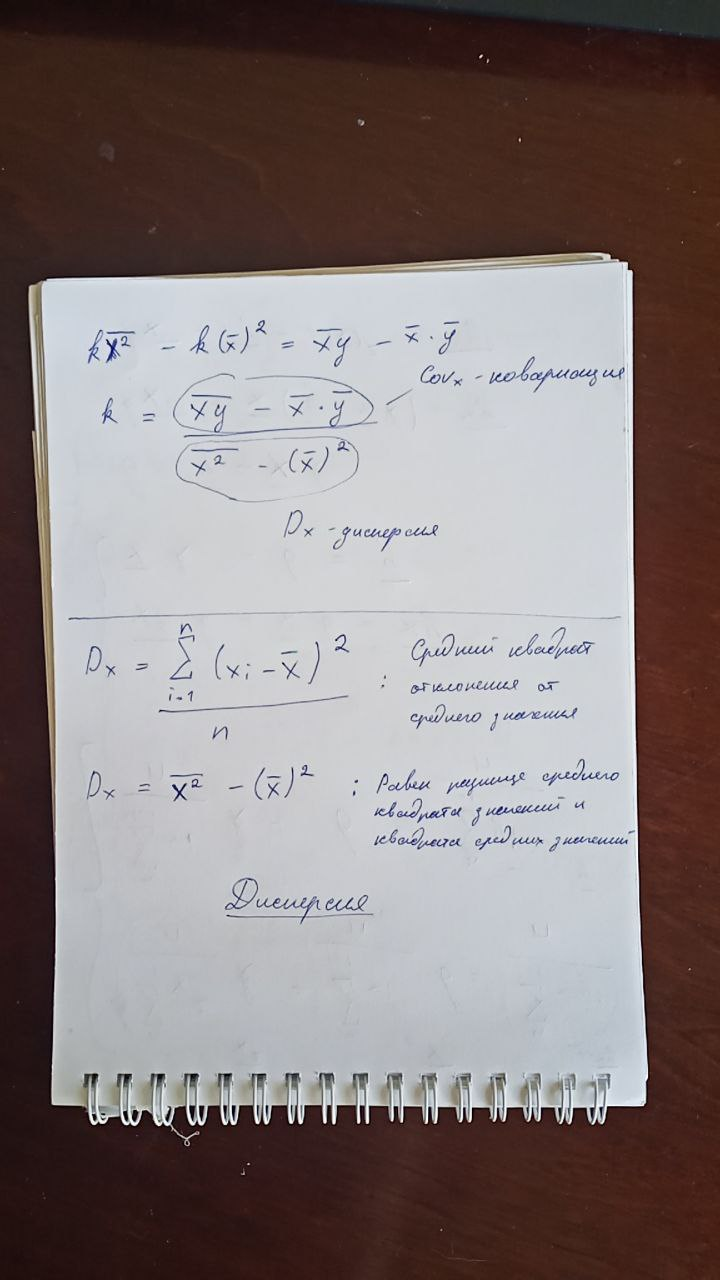 kx̅² - k(x̅)² = x̅y̅ - x̅ · y̅
k = (x̅y̅ - x̅ · y̅) / (x̅² - (x̅)²) Covₓ - ковариация
Dₓ - дисперсия
Dₓ = ∑ⁿᵢ₌₁ (xᵢ - x̅)² / n : Средний квадрат
отклонения от
среднего значения
Dₓ = x̅² - (x̅)² : Равен разнице среднего
квадрата значений и
квадрата средних значений
Дисперсия